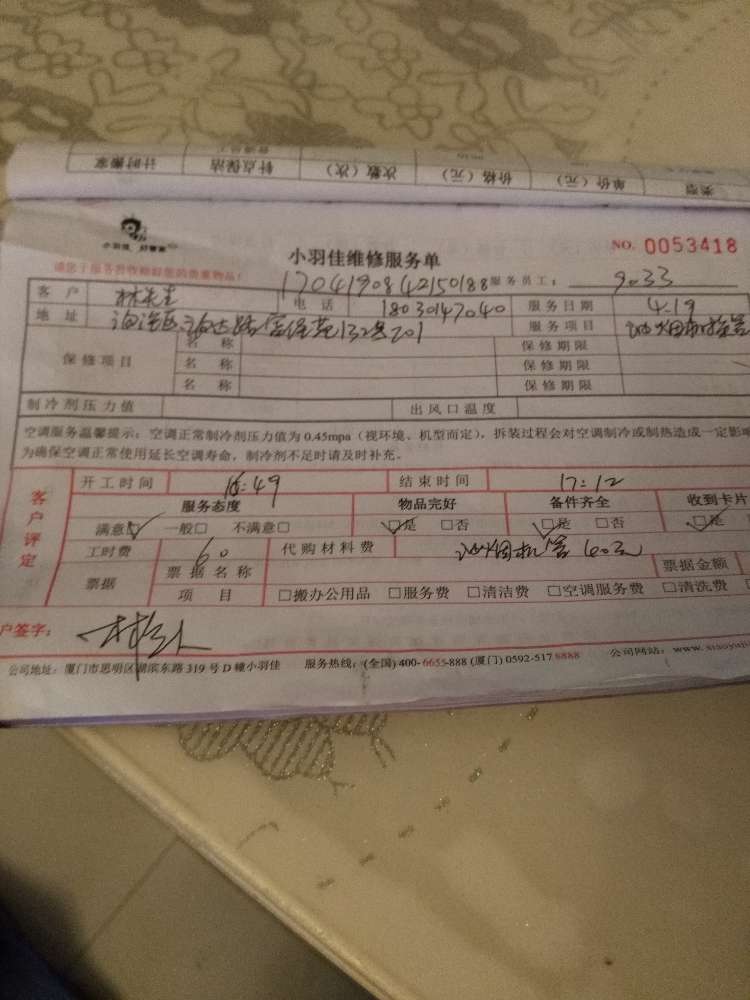 计时搬家 针点保洁 次数（次） 价格（元） 单价（元） 类型
小羽佳 好管家
小羽佳维修服务单
NO. 0053418
请您于服务前收拾好您的贵重物品：
1704190842150188 服务员工： 9033
客户 林先生 电话 18030147040 服务日期 4.19
地址 132号201 服务项目
保修项目 名称 保修期限
名称 保修期限
名称 保修期限
制冷剂压力值 出风口温度
空调服务温馨提示：空调正常制冷剂压力值为0.45mpa（视环境、机型而定），拆装过程会对空调制冷或制热造成一定影
为确保空调正常使用延长空调寿命，制冷剂不足时请及时补充。
客户评定
开工时间 16:49 结束时间 17:12
服务态度 物品完好 备件齐全 收到卡片
满意☑ 一般□ 不满意□ ☑是 □否 ☑是 □否 ☑是
工时费 60 代购材料费 油烟机管 40元
票据 票据名称 票据金额
项目 □搬办公用品 □服务费 □清洁费 □空调服务费 □清洗费
户签字：
公司地址：厦门市思明区湖滨东路319号D幢小羽佳 服务热线：(全国) 400-6655-888 (厦门) 0592-5178888 公司网站：www.xiaoyu